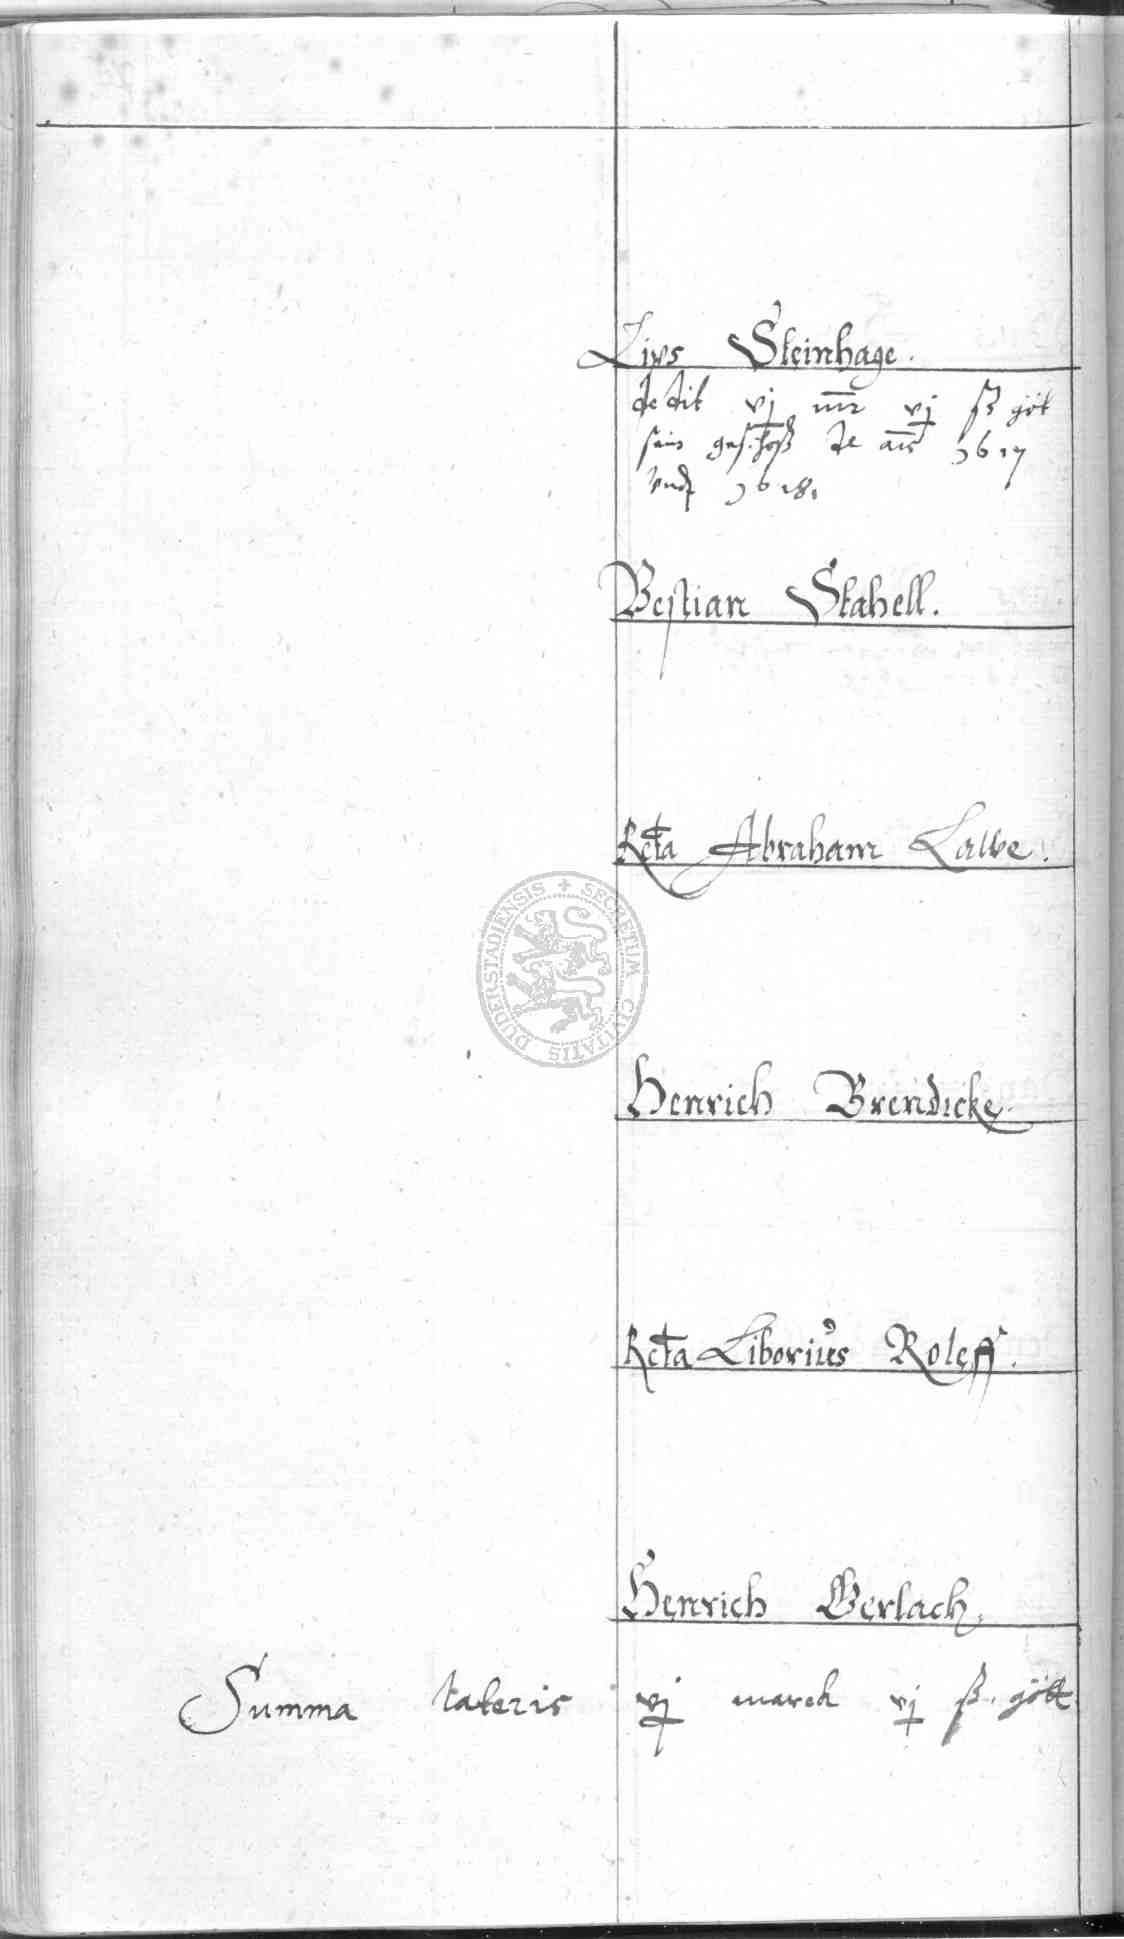 Lips Steinhage.
dedit vj mr vj ß göt
sein geschoß de ao 1617
vndt 1618.
Bestian Stahell.
Rcta Abraham Lawe.
SECRETUM CIVITATIS DUDERSTADIENSIS
Henrich Brendicke.
Rcta Liborius Roleff.
Henrich Gerlach.
Summa lateris vj marck vj ß. gött